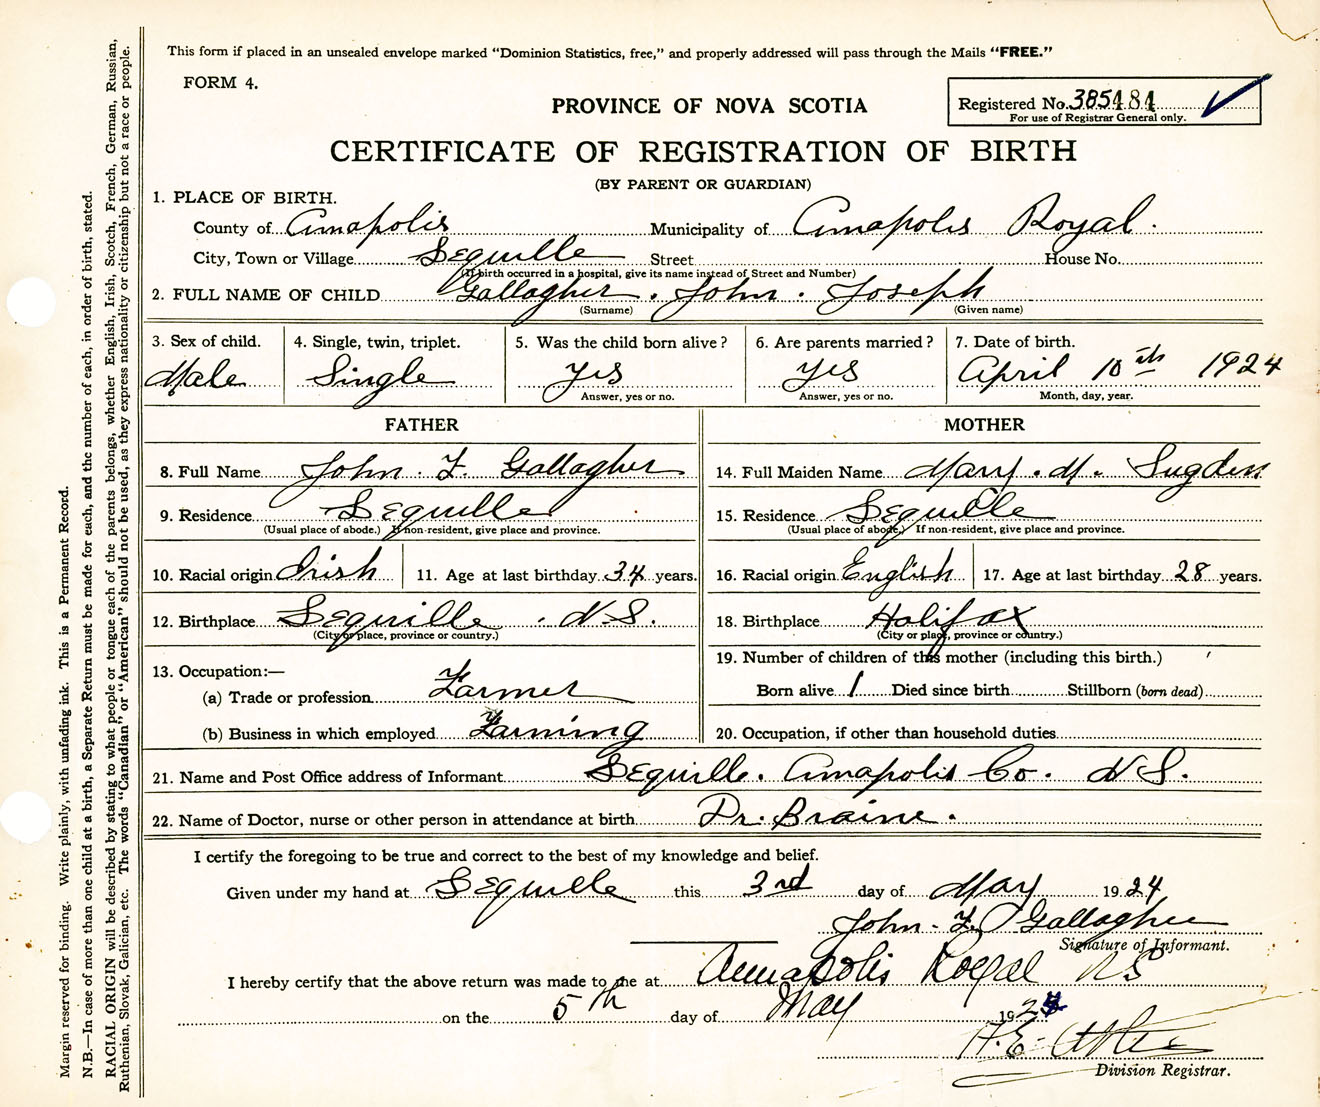 This form if placed in an unsealed envelope marked "Dominion Statistics, free," and properly addressed will pass through the Mails "FREE."
FORM 4.
Registered No. 385484
For use of Registrar General only.
PROVINCE OF NOVA SCOTIA
CERTIFICATE OF REGISTRATION OF BIRTH
(BY PARENT OR GUARDIAN)
1. PLACE OF BIRTH.
County of Annapolis Municipality of Annapolis Royal.
City, Town or Village Lequille Street House No.
(If birth occurred in a hospital, give its name instead of Street and Number)
2. FULL NAME OF CHILD Gallagher. John. Joseph
(Surname) (Given name)
3. Sex of child. 4. Single, twin, triplet. 5. Was the child born alive? 6. Are parents married? 7. Date of birth.
Male Single Yes Yes April 10th 1924
Answer, yes or no. Answer, yes or no. Month, day, year.
FATHER MOTHER
8. Full Name John. F. Gallagher 14. Full Maiden Name Mary. M. Sugden
9. Residence Lequille 15. Residence Lequille
(Usual place of abode.) If non-resident, give place and province. (Usual place of abode.) If non-resident, give place and province.
10. Racial origin Irish 11. Age at last birthday 34 years. 16. Racial origin English 17. Age at last birthday 28 years.
12. Birthplace Lequille. N.S. 18. Birthplace Halifax
(City or place, province or country.) (City or place, province or country.)
13. Occupation:— 19. Number of children of this mother (including this birth.)
(a) Trade or profession Farmer Born alive 1 Died since birth Stillborn (born dead)
(b) Business in which employed Farming 20. Occupation, if other than household duties
21. Name and Post Office address of Informant Lequille. Annapolis Co. N.S.
22. Name of Doctor, nurse or other person in attendance at birth Dr. Braine.
I certify the foregoing to be true and correct to the best of my knowledge and belief.
Given under my hand at Lequille this 3rd day of May 1924
John. F. Gallagher
Signature of Informant.
I hereby certify that the above return was made to me at Annapolis Royal NS
on the 5th day of May 1924
H.E.
Division Registrar.
Margin reserved for binding. Write plainly, with unfading ink. This is a Permanent Record.
N.B.—In case of more than one child at a birth, a Separate Return must be made for each, and the number of each, in order of birth, stated.
RACIAL ORIGIN will be described by stating to what people or tongue each of the parents belongs, whether English, Irish, Scotch, French, German, Russian,
Ruthenian, Slovak, Galician, etc. The words "Canadian" or "American" should not be used, as they express nationality or citizenship but not a race or people.